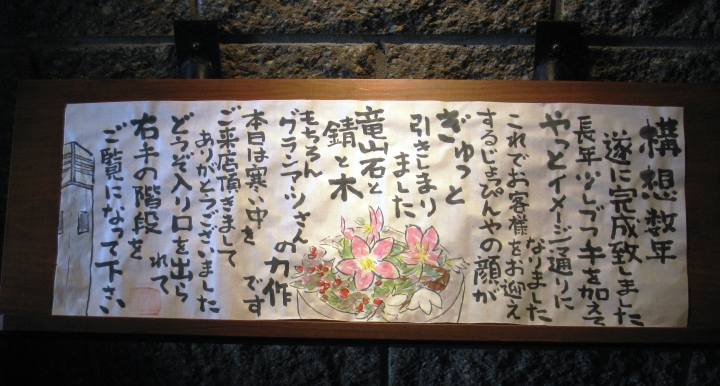 構想数年
遂に完成致しました
長年少しづつ手を加えて
やっとイメージ通りに
なりました
これでお客様をお迎え
するじょぴんやの顔が
ぎゅっと
引きしまり
ました
竜山石と
錆と木
もちろん
グランマーツさん
の力作
です
本日は寒い中を
ご来店頂きまして
ありがとうございました
どうぞ入り口を出ら
れて
右手の階段を
ご覧になって下さい